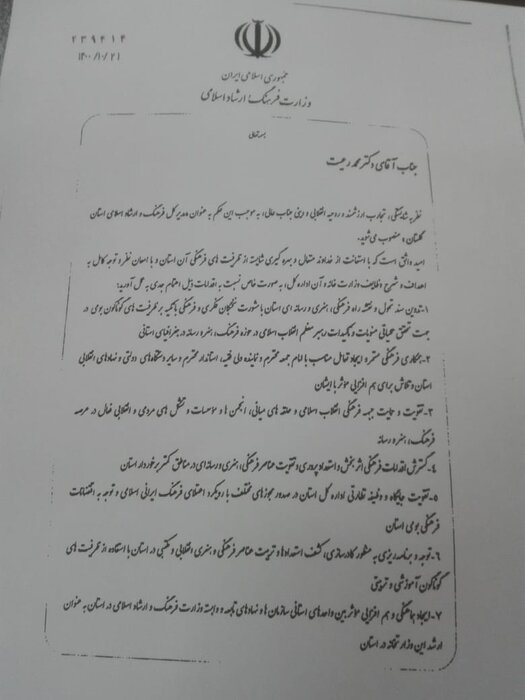 ۲۳۹۴۱۴
۱۴۰۰/۱۰/۲۱
جمهوری اسلامی ایران
وزارت فرهنگ و ارشاد اسلامی
بسمه تعالی
جناب آقای دکتر محمد رعیت
نظر به شایستگی، تجارب ارزشمند و روحیه انقلابی و دینی جناب عالی، به موجب این حکم به عنوان «مدیرکل فرهنگ و ارشاد اسلامی استان
گلستان» منصوب می‌شوید.
امید واثق است که با استعانت از خداوند متعال و بهره گیری شایسته از ظرفیت های فرهنگی آن استان و با امعان نظر و توجه کامل به
اهداف و شرح وظایف وزارت خانه و آن اداره کل، به صورت خاص نسبت به اقدامات ذیل اهتمام جدی به عمل آورید:
۱-تدوین سند تحول و نقشه راه فرهنگی، هنری و رسانه ای استان با مشورت نخبگان فکری و فرهنگی با تکیه بر ظرفیت های گوناگون بومی در
جهت تحقق عملیاتی منویات و تاکیدات رهبر معظم انقلاب اسلامی در حوزه فرهنگ، هنر و رسانه در جغرافیای استانی
۲-همکاری فرهنگی مستمر و ایجاد تعامل مناسب با امام جمعه محترم و نماینده ولی فقیه، استاندار محترم و سایر دستگاههای دولتی و نهادهای انقلابی
استان و تلاش برای هم افزایی مؤثر با ایشان
۳-تقویت و حمایت جبهه فرهنگی انقلاب اسلامی و حلقه های میانی، انجمن ها و موسسات و تشکل های مردمی و انقلابی فعال در عرصه
فرهنگ، هنر و رسانه
۴-گسترش اقدامات فرهنگی اثربخش و استعدادپروری و تقویت عناصر فرهنگی، هنری و رسانه‌ای در مناطق کمتر برخوردار استان
۵-تقویت جایگاه و وظیفه نظارتی اداره کل استان در صدور مجوزهای مختلف با رویکرد اعتلای فرهنگ ایرانی اسلامی و توجه به اقتضائات
فرهنگی بومی استان
۶-توجه و برنامه ریزی به منظور کادرسازی، کشف استعدادها و تربیت عناصر فرهنگی و هنری انقلابی و مکتبی در استان با استفاده از ظرفیت های
گوناگون آموزشی و تربیتی
۷-ایجاد هماهنگی و هم افزایی مؤثر بین واحدهای استانی سازمان ها و نهادهای تابعه و وابسته وزارت فرهنگ و ارشاد اسلامی در استان به عنوان
ارشد این وزارتخانه در استان